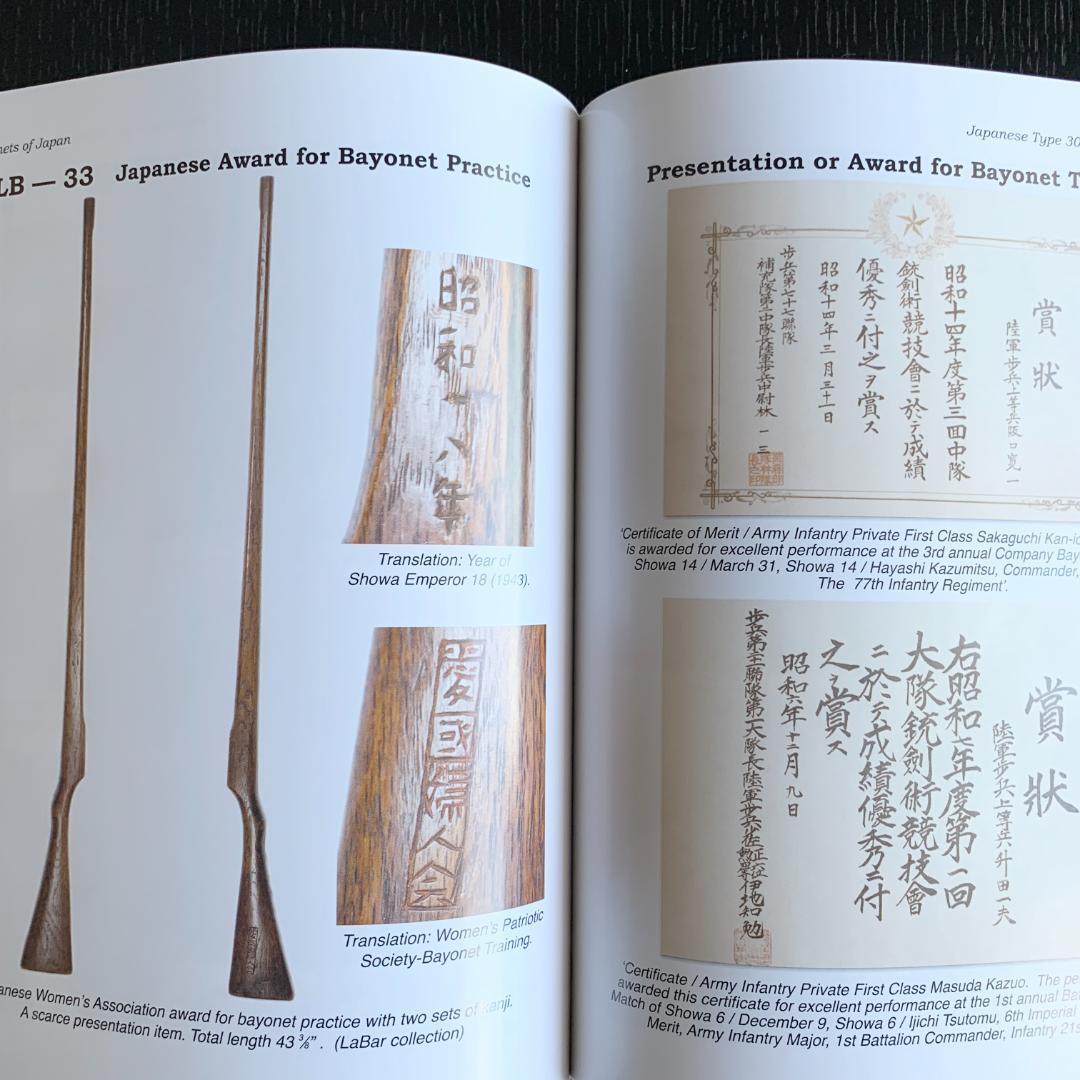 nets of Japan
LB — 33 Japanese Award for Bayonet Practice
昭和十八年
Translation: Year of
Showa Emperor 18 (1943).
愛國婦人会
Translation: Women's Patriotic
Society-Bayonet Training.
anese Women's Association award for bayonet practice with two sets of kanji.
A scarce presentation item. Total length 43 ⅜". (LaBar collection)
Japanese Type 30
Presentation or Award for Bayonet T
賞狀
陸軍歩兵上等兵阪口寛一
昭和十四年度第三回中隊
銃劍術競技會ニ於テ成績
優秀ニ付之ヲ賞ス
昭和十四年三月三十一日
歩兵第七十七聯隊
補充隊第二中隊長陸軍歩兵中尉林一三
'Certificate of Merit / Army Infantry Private First Class Sakaguchi Kan-ic
is awarded for excellent performance at the 3rd annual Company Bay
Showa 14 / March 31, Showa 14 / Hayashi Kazumitsu, Commander,
The 77th Infantry Regiment'.
賞狀
陸軍歩兵上等兵升田一夫
右昭和六年度第一回
大隊銃劍術競技會
ニ於テ成績優秀ニ付
之ヲ賞ス
昭和六年十二月九日
大隊長陸軍歩兵 伊地知勉
'Certificate / Army Infantry Private First Class Masuda Kazuo. The pe
awarded this certificate for excellent performance at the 1st annual Bat
Match of Showa 6 / December 9, Showa 6 / Ijichi Tsutomu, 6th Imperial
Merit, Army Infantry Major, 1st Battalion Commander, Infantry 21s